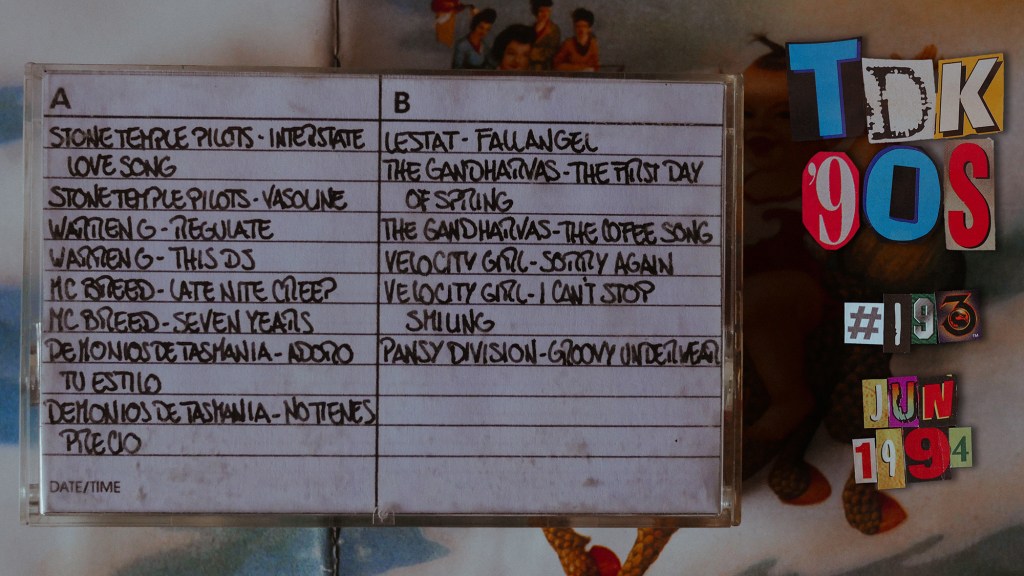 A
STONE TEMPLE PILOTS - INTERSTATE
LOVE SONG
STONE TEMPLE PILOTS - VASOLINE
WARREN G - REGULATE
WARREN G - THIS DJ
MC BREED - LATE NITE CREEP
MC BREED - SEVEN YEARS
DEMONIOS DE TASMANIA - ADORO
TU ESTILO
DEMONIOS DE TASMANIA - NO TIENES
PRECIO
DATE/TIME
B
LESTAT - FALLANGEL
THE GANDHARVAS - THE FIRST DAY
OF SPRING
THE GANDHARVAS - THE COFEE SONG
VELOCITY GIRL - SORRY AGAIN
VELOCITY GIRL - I CAN'T STOP
SMILING
PANSY DIVISION - GROOVY UNDERWEAR
TDK
'90S
#193
JUN
1994